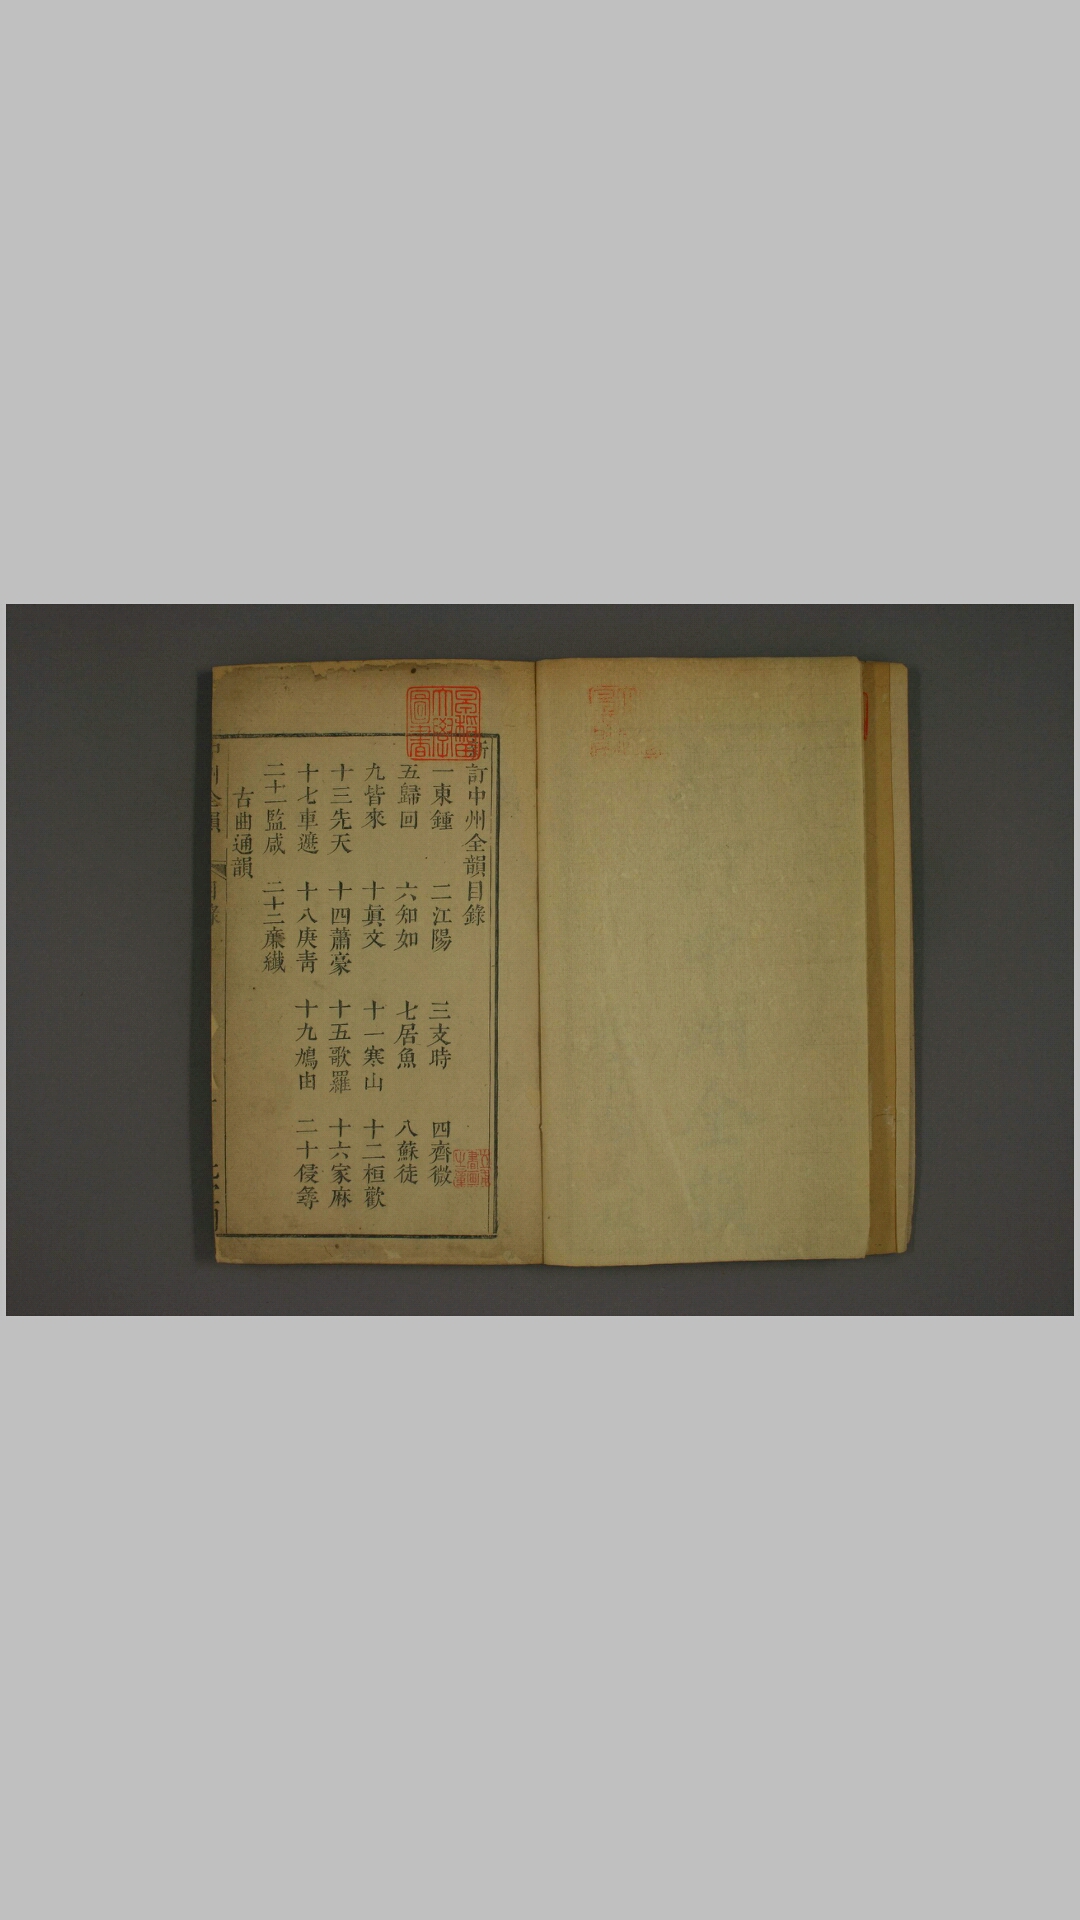 新訂中州全韻目錄
一東鍾　二江陽　三支時　四齊微
五歸回　六知如　七居魚　八蘇徒
九皆來　十眞文　十一寒山　十二桓歡
十三先天　十四蕭豪　十五歌羅　十六家麻
十七車遮　十八庚靑　十九鳩由　二十侵尋
二十一監咸　二十二廉纖
古曲通韻
中州全韻　目錄